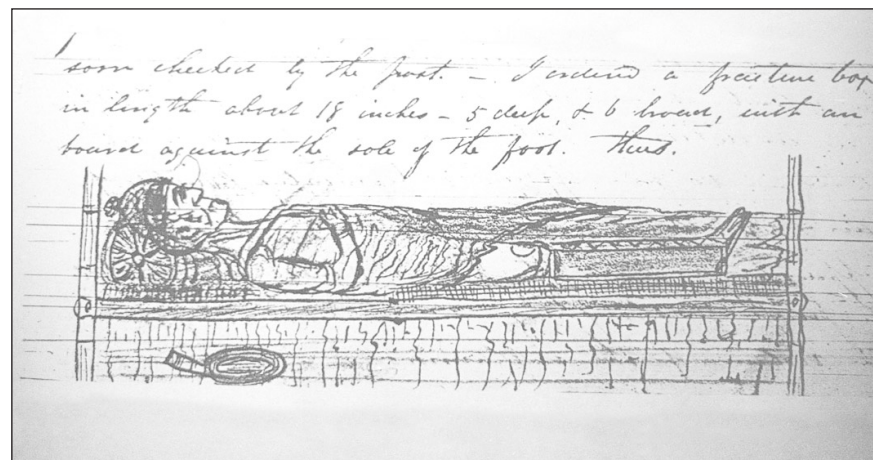 soon checked by the frost. – I ordered a fracture box
in length about 18 inches – 5 deep, & 6 broad, with an
board against the sole of the foot. Thus.